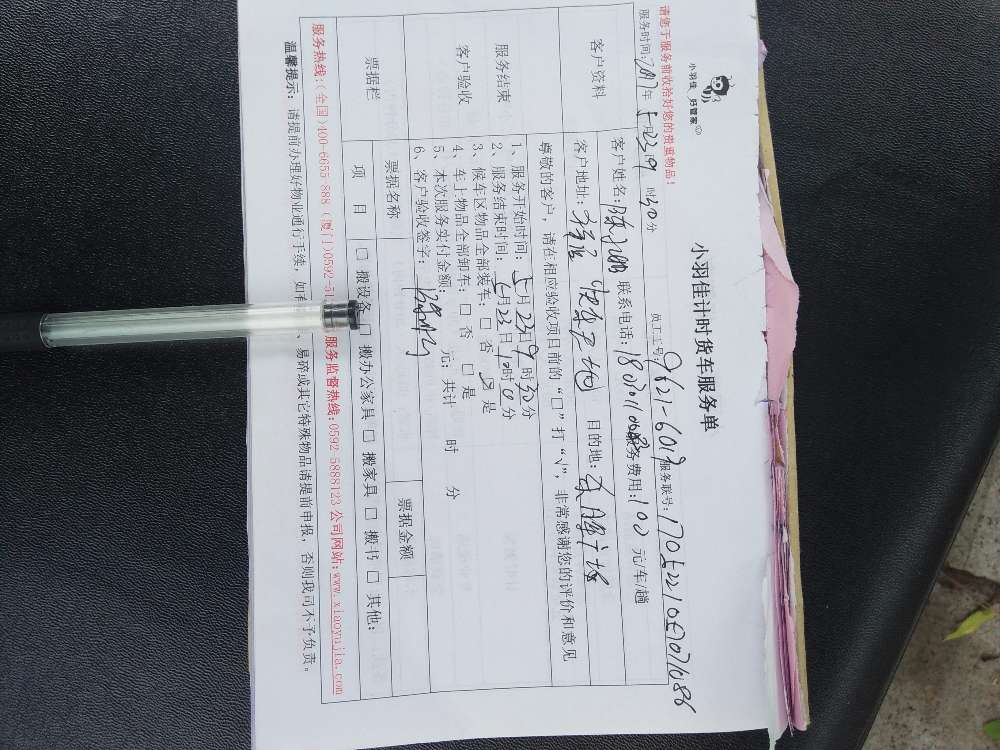 小羽佳 好管家
小羽佳计时货车服务单
请您于服务前收拾好您的贵重物品!
员工工号: 9621-6019 服务联号:
服务时间: 2017年 5月23日9时30分
客户资料
客户姓名: 联系电话: 服务费用: 100 元/车/趟
客户地址: 目的地:
尊敬的客户,请在相应验收项目前的“□”打“√”,非常感谢您的评价和意见
服务结束
客户验收
1、服务开始时间: 5月23日9时30分
2、服务结束时间: 5月23日10时0分
3、候车区物品全部装车: □ 否 □ 是
4、车上物品全部卸车: □ 否 □ 是
5、本次服务实付金额: 元; 共计 时 分
6、客户验收签字:
票据栏
票据名称 票据金额
项目 □ 搬设备 □ 搬办公家具 □ 搬家具 □ 搬书 □ 其他:
服务热线:(全国)400-6655-888 (厦门)0592-51 服务监督热线:0592-5888123 公司网站:www.xiaoyujia.com
温馨提示: 请提前办理好物业通行手续, 如有 、易碎或其它特殊物品请提前申报, 否则我司不予负责。